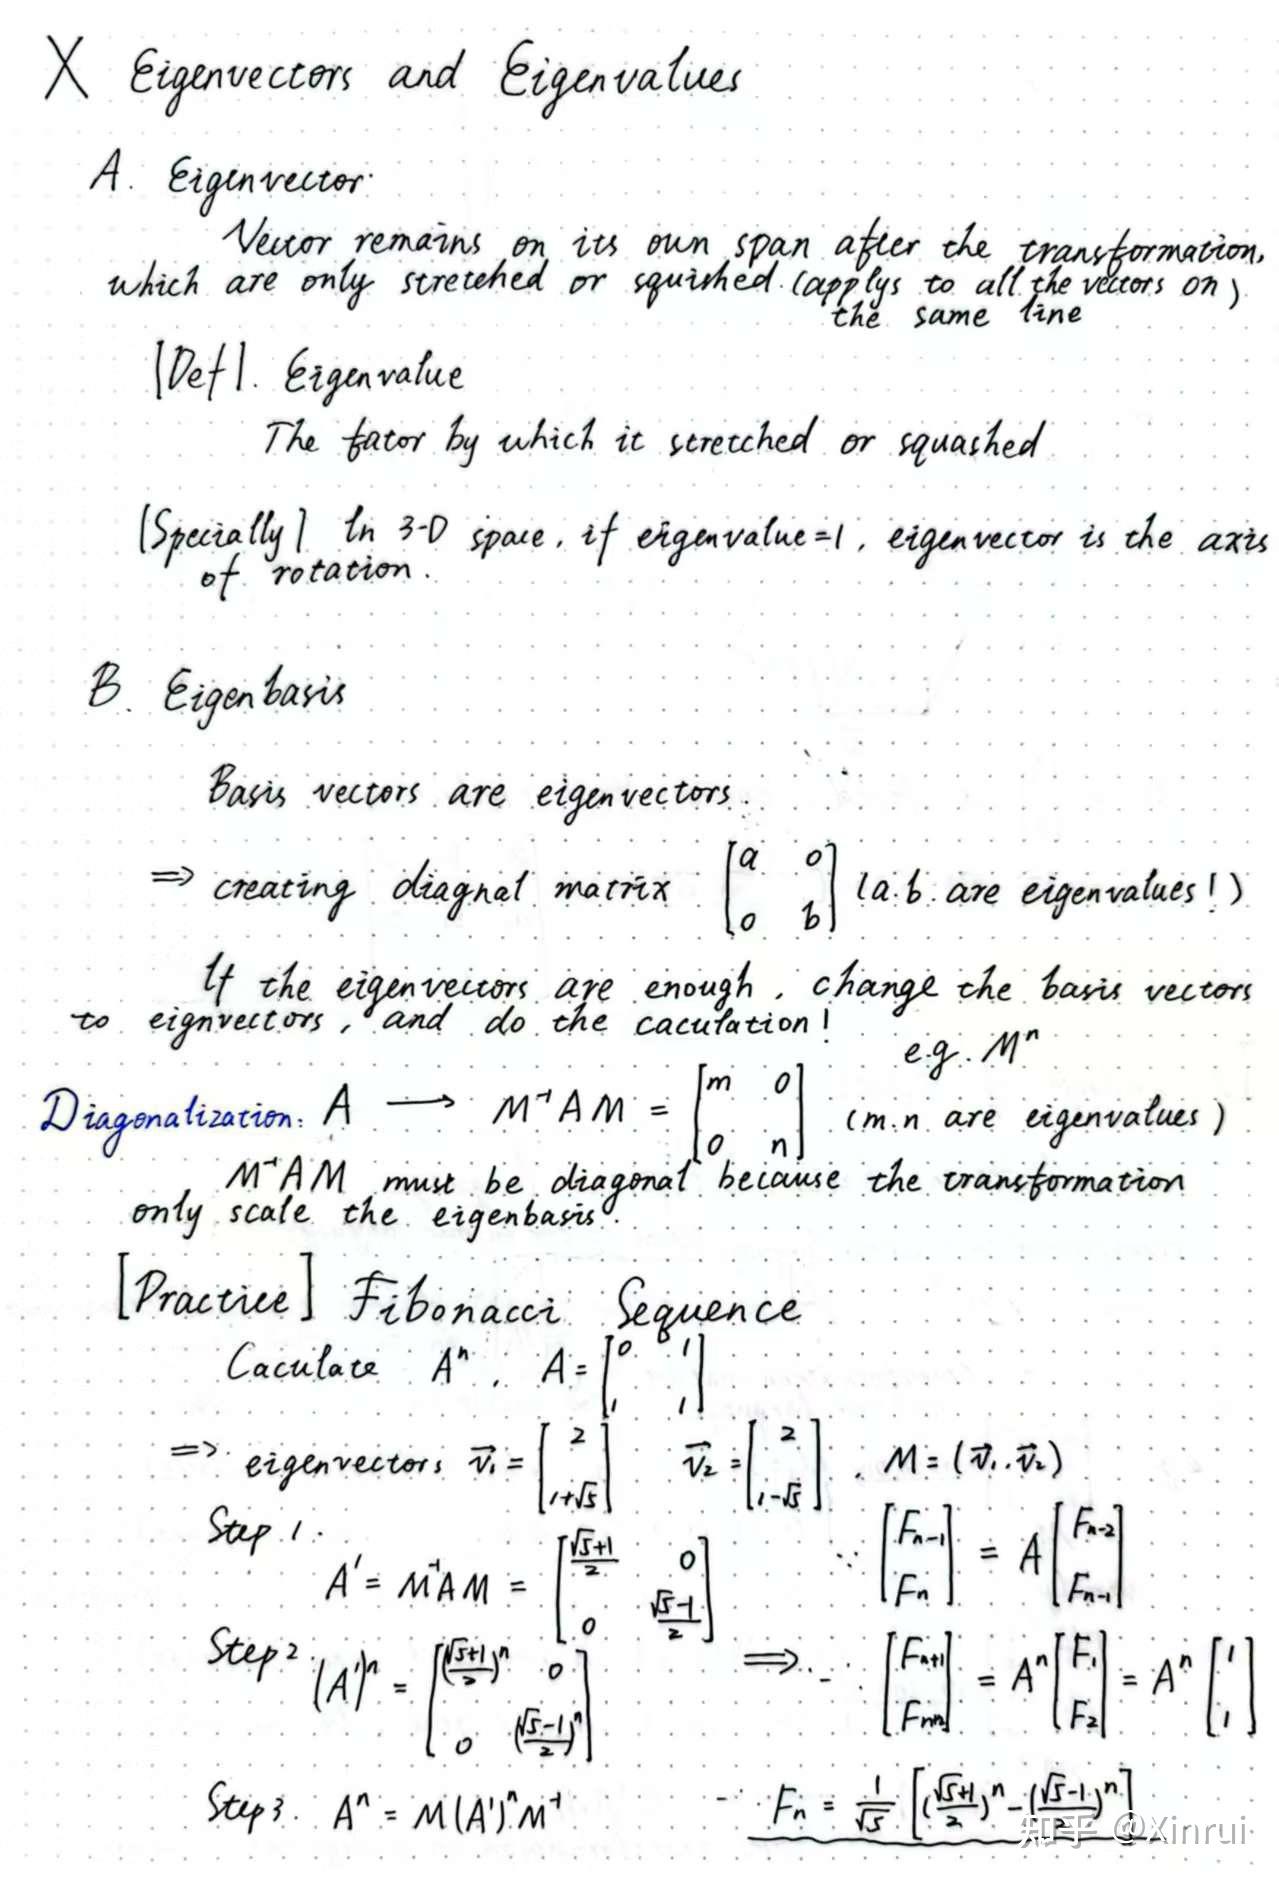 X Eigenvectors and Eigenvalues
A. Eigenvector.
Vector remains on its own span after the transformation,
which are only stretched or squished. (applys to all the vectors on)
the same line
[Def]. Eigenvalue
The fator by which it stretched or squashed
[Specially] In 3-D space, if eigenvalue=1, eigenvector is the axis
of rotation.
B. Eigenbasis
Basis vectors are eigenvectors.
⇒ creating diagnal matrix [a 0; 0 b] (a.b. are eigenvalues!)
If the eigenvectors are enough, change the basis vectors
to eignvectors, and do the caculation!
e.g. Mⁿ
Diagonalization: A → M⁻¹AM = [m 0; 0 n] (m.n are eigenvalues)
M⁻¹AM must be diagonal because the transformation
only scale the eigenbasis.
[Practice] Fibonacci Sequence
Caculate Aⁿ, A = [0 1; 1 1]
⇒ eigenvectors v⃗₁ = [2; 1+√5] v⃗₂ = [2; 1-√5], M = (v⃗₁.v⃗₂)
Step 1.
A' = M⁻¹AM = [(√5+1)/2 0; 0 (√5-1)/2]
∵ [Fn-1; Fn] = A [Fn-2; Fn-1]
Step 2. (A')ⁿ = [((√5+1)/2)ⁿ 0; 0 ((√5-1)/2)ⁿ]
⇒ [Fn+1; Fn+2] = Aⁿ [F₁; F₂] = Aⁿ [1; 1]
Step 3. Aⁿ = M(A')ⁿM⁻¹
Fn = 1/√5 [((√5+1)/2)ⁿ - ((√5-1)/2)ⁿ]
知乎 @Xinrui